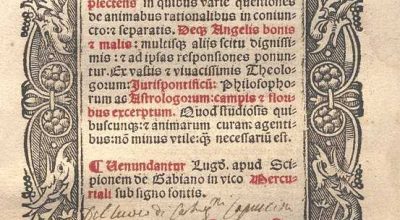 plectens in quibus varie questiones
de animabus rationalibus in coniun-
cto: ⁊ separatis. Deq₃ Angelis bonis
⁊ malis: multisq₃ aliis scitu dignissi-
mis: ⁊ ad ipsas responsiones ponun-
tur. Ex vastis ⁊ viuacissimis Theolo-
gorum: Jurispontificũ: Philosophorum
ac Astrologorum: campis ⁊ flori
bus excerptum. Quod studiosis qui
buscunq₃: ⁊ animarum curam agenti-
bus: nõ minus vtile: q̃ necessariũ est.
¶ Uenundantur Lugđ. apud Sci-
pionem de Gabiano in vico Mercu-
riali sub signo fontis.